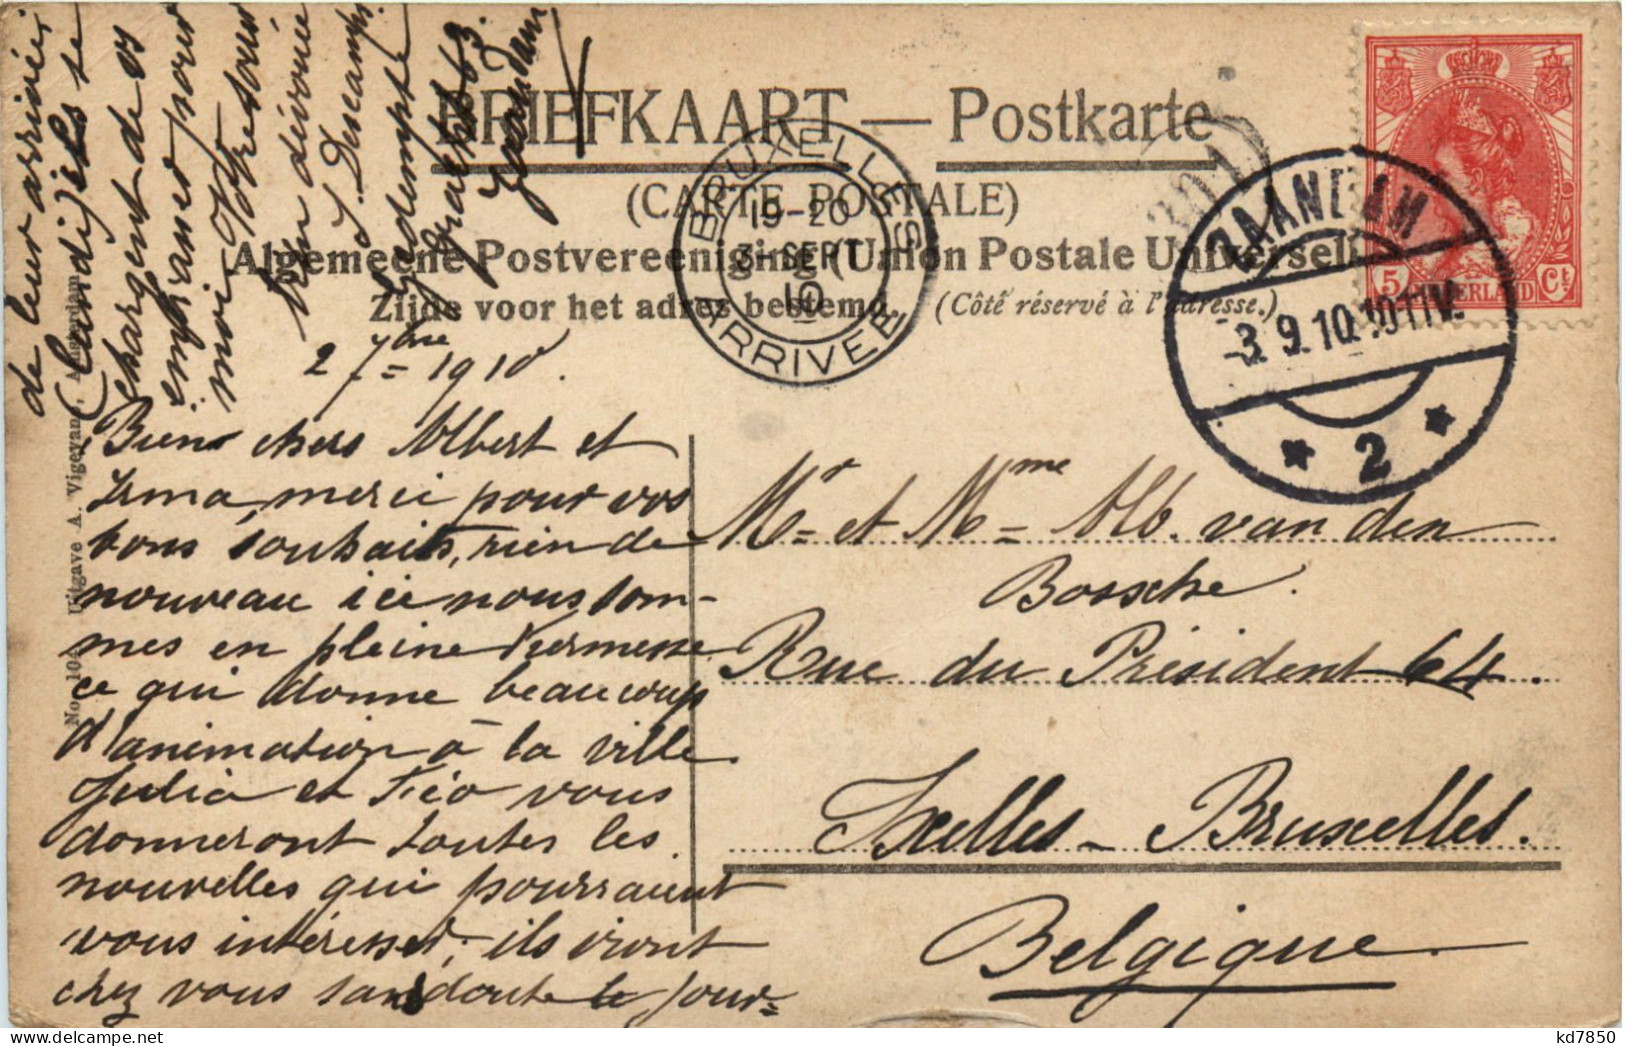 BRIEFKAART — Postkarte
(CARTE POSTALE)
Algemeene Postvereeniging (Union Postale Universelle
Zijde voor het adres bestemd. (Côté réservé à l'adresse.)
BRUXELLES
19-20
3-SEPT
10
ARRIVEE
ZAANDAM
-3.9.10.10-11V.
* 2 *
5 NEDERLAND Ct
2 7bre = 1910.
Bien chers Albert et
Irma, merci pour vos
bons souhaits, rien de
nouveau ici nous som-
mes en pleine Kermesse
ce qui donne beaucoup
d'animation à la ville
Julia et Féo vous
donneront toutes les
nouvelles qui pourraient
vous intéresser, ils iront
chez vous sans doute le jour=
de leur arrivée,
(lundi) ils se
chargent de vs
embrasser pour
moi Votre soeur
bien dévouée
J. Descamps
Gedempte
Gracht 63.
Zaandam
Mr = et Mme = Alb. van den
Bossche.
Rue du Président 64.
Ixelles - Bruxelles.
Belgique
Uitgave A. Vigevano, Amsterdam
kd7850